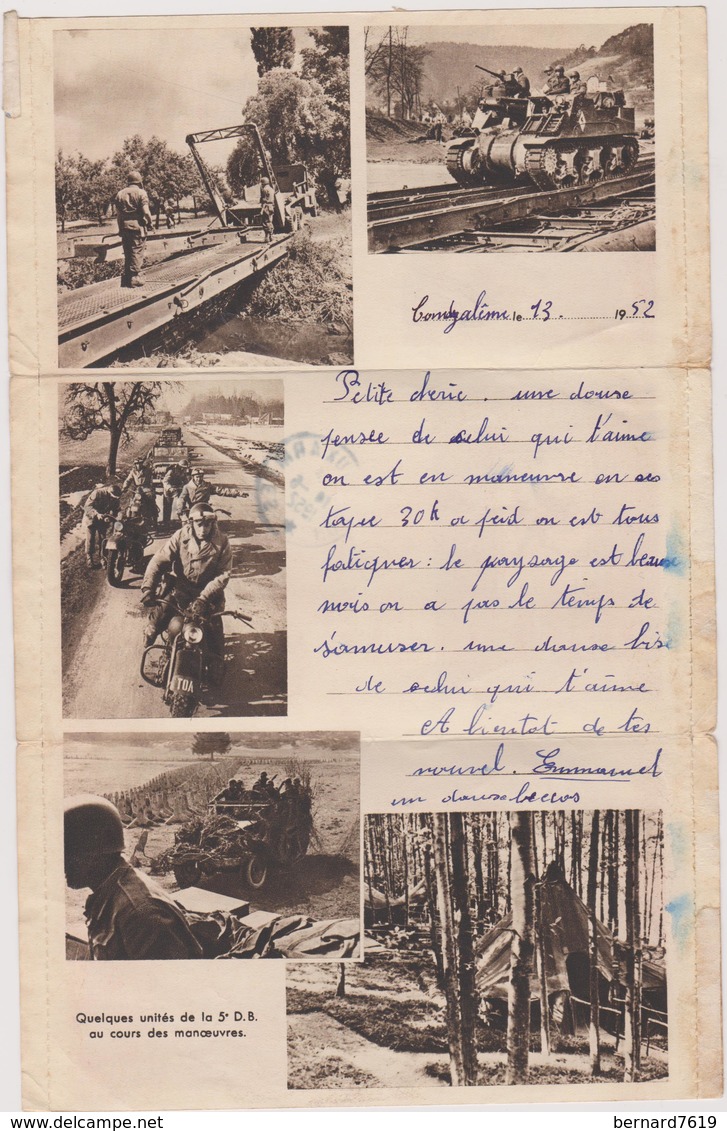 le 13. 1952
Petite cherie. une douse
pensee de celui qui t'aime
on est en maneuvre on es
tapee 30k a pied on est tous
fatiguer : le paysage est beau
mais on a pas le temps de
s'amuser. une douse bise
de celui qui t'aime
A bientot de tes
nouvel. Emmanuel
un douse becos
TDA
Quelques unités de la 5e D.B.
au cours des manœuvres.
bernard7619